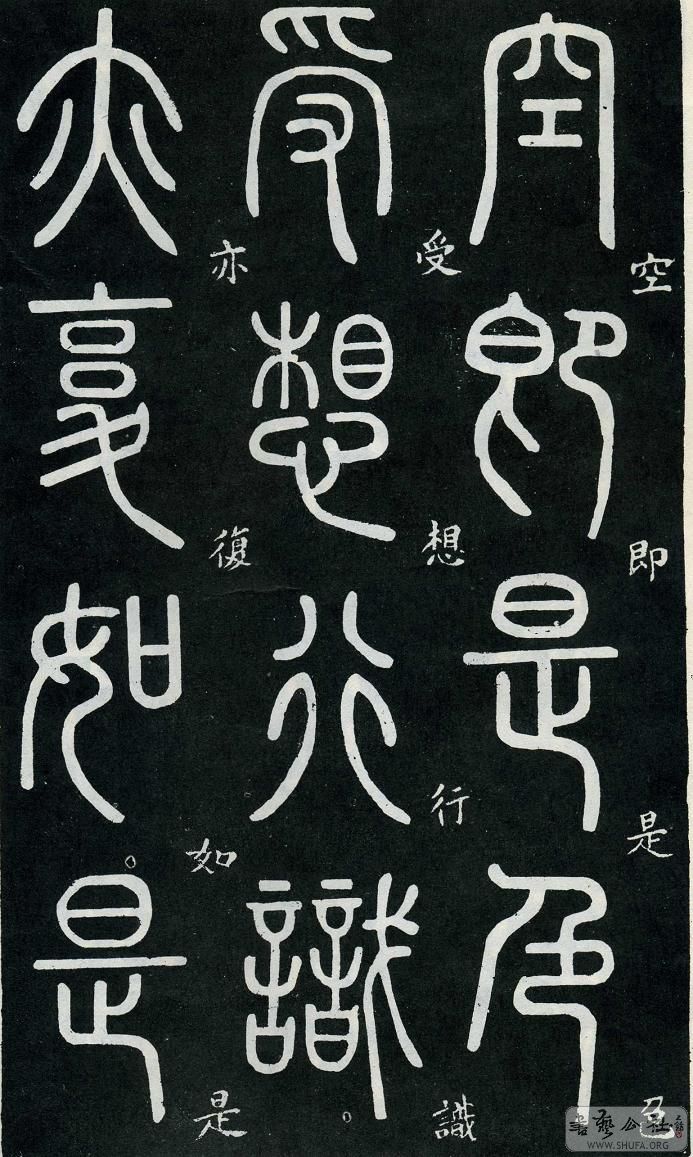 空即是色
受想行識
亦復如是
空即是色
受想行識
亦復如是
書藝公社
WWW.SHUFA.ORG